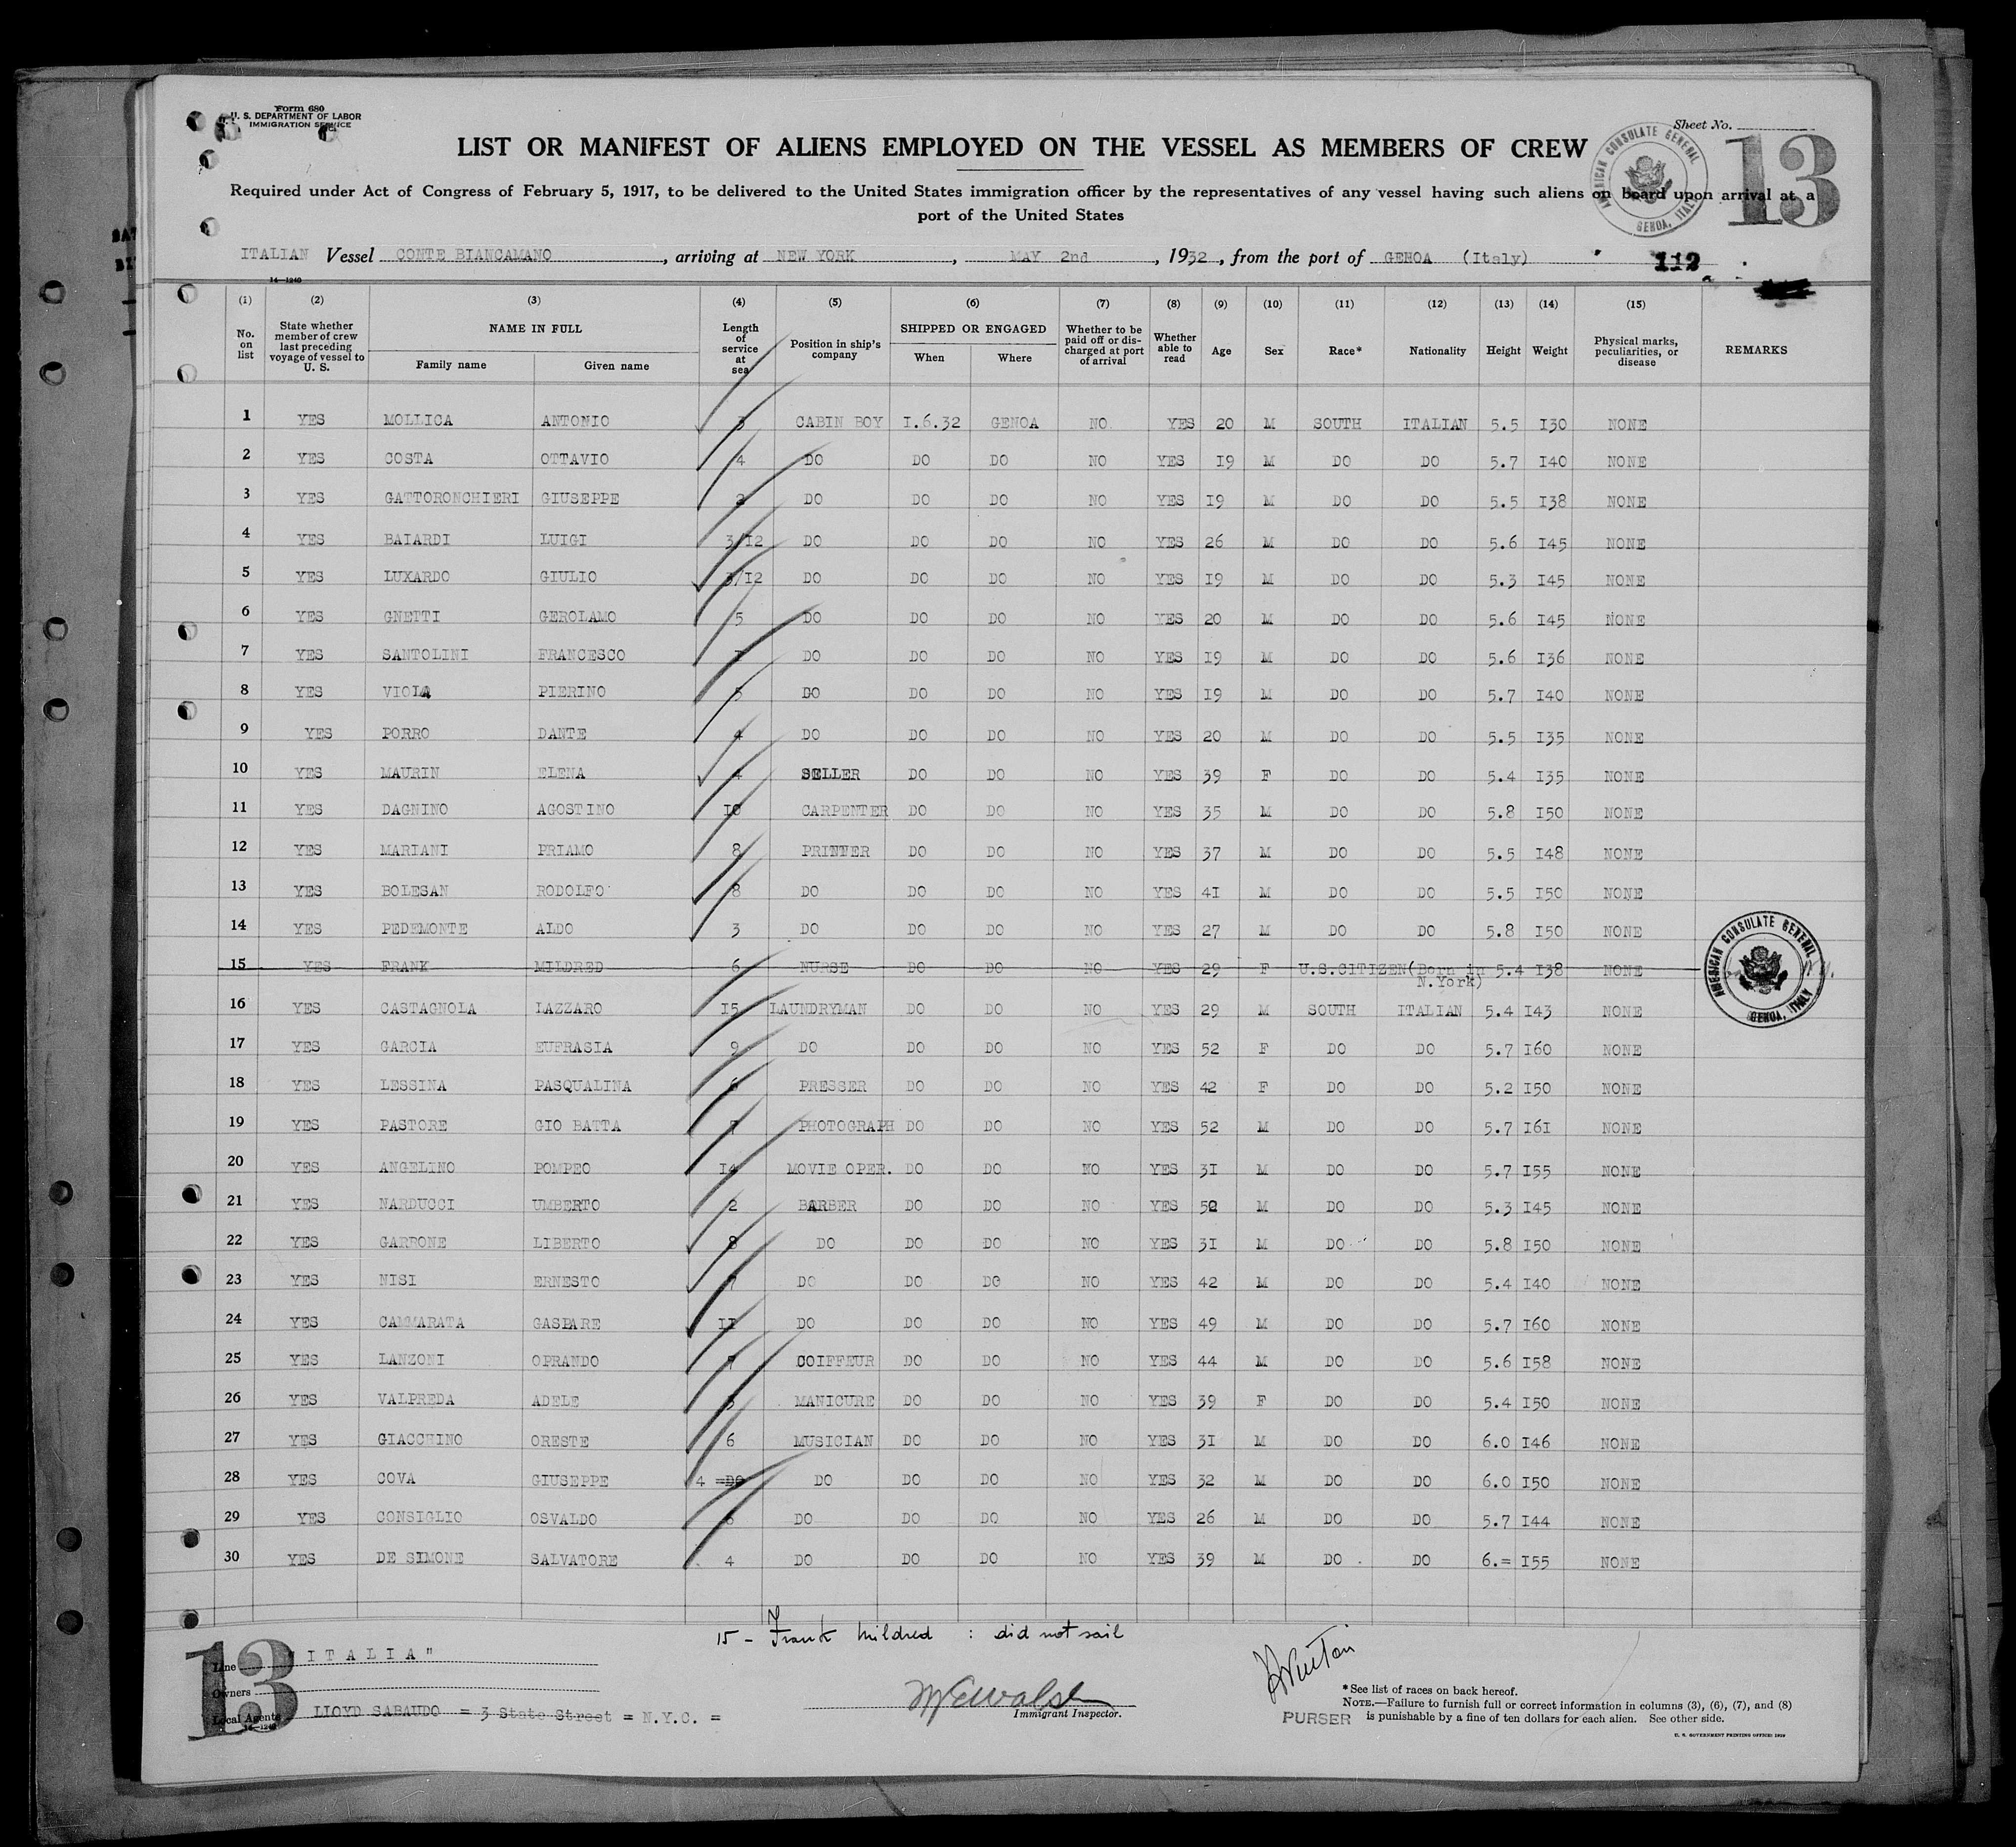 Form 680
U. S. DEPARTMENT OF LABOR
IMMIGRATION SERVICE
Sheet No.
13
AMERICAN CONSULATE GENERAL
GENOA, ITALY
LIST OR MANIFEST OF ALIENS EMPLOYED ON THE VESSEL AS MEMBERS OF CREW
Required under Act of Congress of February 5, 1917, to be delivered to the United States immigration officer by the representatives of any vessel having such aliens on board upon arrival at a
port of the United States
ITALIAN Vessel CONTE BIANCAMANO, arriving at NEW YORK, MAY 2nd, 1932, from the port of GENOA (Italy) 112
14—1240
(1) (2) (3) (4) (5) (6) (7) (8) (9) (10) (11) (12) (13) (14) (15)
No. on list | State whether member of crew last preceding voyage of vessel to U. S. | NAME IN FULL Family name Given name | Length of service at sea | Position in ship's company | SHIPPED OR ENGAGED When Where | Whether to be paid off or discharged at port of arrival | Whether able to read | Age | Sex | Race* | Nationality | Height | Weight | Physical marks, peculiarities, or disease | REMARKS
1 YES MOLLICA ANTONIO 3 CABIN BOY I.6.32 GENOA NO YES 20 M SOUTH ITALIAN 5.5 I30 NONE
2 YES COSTA OTTAVIO 4 DO DO DO NO YES I9 M DO DO 5.7 I40 NONE
3 YES GATTORONCHIERI GIUSEPPE 2 DO DO DO NO YES I9 M DO DO 5.5 I38 NONE
4 YES BAIARDI LUIGI 3/I2 DO DO DO NO YES 26 M DO DO 5.6 I45 NONE
5 YES LUXARDO GIULIO 3/I2 DO DO DO NO YES I9 M DO DO 5.3 I45 NONE
6 YES GNETTI GEROLAMO 5 DO DO DO NO YES 20 M DO DO 5.6 I45 NONE
7 YES SANTOLINI FRANCESCO I DO DO DO NO YES I9 M DO DO 5.6 I36 NONE
8 YES VIOLA PIERINO 5 DO DO DO NO YES I9 M DO DO 5.7 I40 NONE
9 YES PORRO DANTE 4 DO DO DO NO YES 20 M DO DO 5.5 I35 NONE
10 YES MAURIN ELENA 4 SELLER DO DO NO YES 39 F DO DO 5.4 I35 NONE
11 YES DAGNINO AGOSTINO I0 CARPENTER DO DO NO YES 35 M DO DO 5.8 I50 NONE
12 YES MARIANI PRIAMO 8 PRINTER DO DO NO YES 37 M DO DO 5.5 I48 NONE
13 YES BOLESAN RODOLFO 8 DO DO DO NO YES 4I M DO DO 5.5 I50 NONE
14 YES PEDEMONTE ALDO 3 DO DO DO NO YES 27 M DO DO 5.8 I50 NONE
15 YES FRANK MILDRED 6 NURSE DO DO NO YES 29 F U.S.CITIZEN(Born in N.York) 5.4 I38 NONE
AMERICAN CONSULATE GENERAL
GENOA, ITALY
16 YES CASTAGNOLA LAZZARO I5 LAUNDRYMAN DO DO NO YES 29 M SOUTH ITALIAN 5.4 I43 NONE
17 YES GARCIA EUFRASIA 9 DO DO DO NO YES 52 F DO DO 5.7 I60 NONE
18 YES LESSINA PASQUALINA 6 PRESSER DO DO NO YES 42 F DO DO 5.2 I50 NONE
19 YES PASTORE GIO BATTA 7 PHOTOGRAPH DO DO NO YES 52 M DO DO 5.7 I6I NONE
20 YES ANGELINO POMPEO I4 MOVIE OPER. DO DO NO YES 3I M DO DO 5.7 I55 NONE
21 YES NARDUCCI UMBERTO 2 BARBER DO DO NO YES 50 M DO DO 5.3 I45 NONE
22 YES GARRONE LIBERTO 8 DO DO DO NO YES 3I M DO DO 5.8 I50 NONE
23 YES NISI ERNESTO 7 DO DO DO NO YES 42 M DO DO 5.4 I40 NONE
24 YES CAMMARATA GASPARE II DO DO DO NO YES 49 M DO DO 5.7 I60 NONE
25 YES LANZONI OPRANDO 7 COIFFEUR DO DO NO YES 44 M DO DO 5.6 I58 NONE
26 YES VALPREDA ADELE 3 MANICURE DO DO NO YES 39 F DO DO 5.4 I50 NONE
27 YES GIACCHINO ORESTE 6 MUSICIAN DO DO NO YES 3I M DO DO 6.0 I46 NONE
28 YES COVA GIUSEPPE 4 =DO DO DO DO NO YES 32 M DO DO 6.0 I50 NONE
29 YES CONSIGLIO OSVALDO 6 DO DO DO NO YES 26 M DO DO 5.7 I44 NONE
30 YES DE SIMONE SALVATORE 4 DO DO DO NO YES 39 M DO DO 6.= I55 NONE
15 - Frank Mildred : did not sail
13
Line "ITALIA"
Owners
Local Agents LLOYD SABAUDO = 3 State Street = N.Y.C. =
14—1240
Immigrant Inspector.
PURSER
*See list of races on back hereof.
NOTE.—Failure to furnish full or correct information in columns (3), (6), (7), and (8)
is punishable by a fine of ten dollars for each alien. See other side.
U. S. GOVERNMENT PRINTING OFFICE: 1929